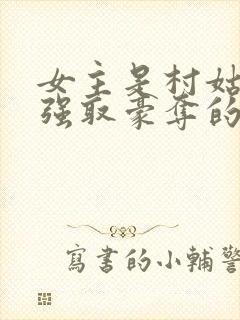 女主是村姑
强取豪夺的
寫書的小輔警